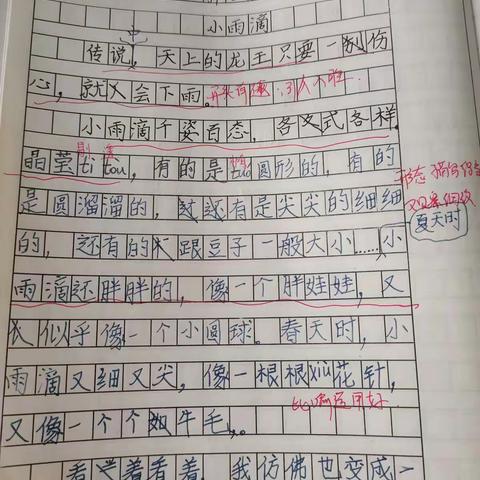 小雨滴
传说中，天上的龙王只要一别伤
心，就人会下雨。
小雨滴千姿百态，各文式各样。
晶莹tī tōu，有的是圆形的，有的
是圆溜溜的，还有是尖尖的细细
的，还有的跟豆子一般大小……小
夏天时
雨滴还胖胖的，像一个胖娃娃，又
似乎像一个小圆球。春天时，小
雨滴又细又尖，像一根根xiù花针，
比喻运用好
又像一个个如牛毛。
看着看着，我仿佛也变成一